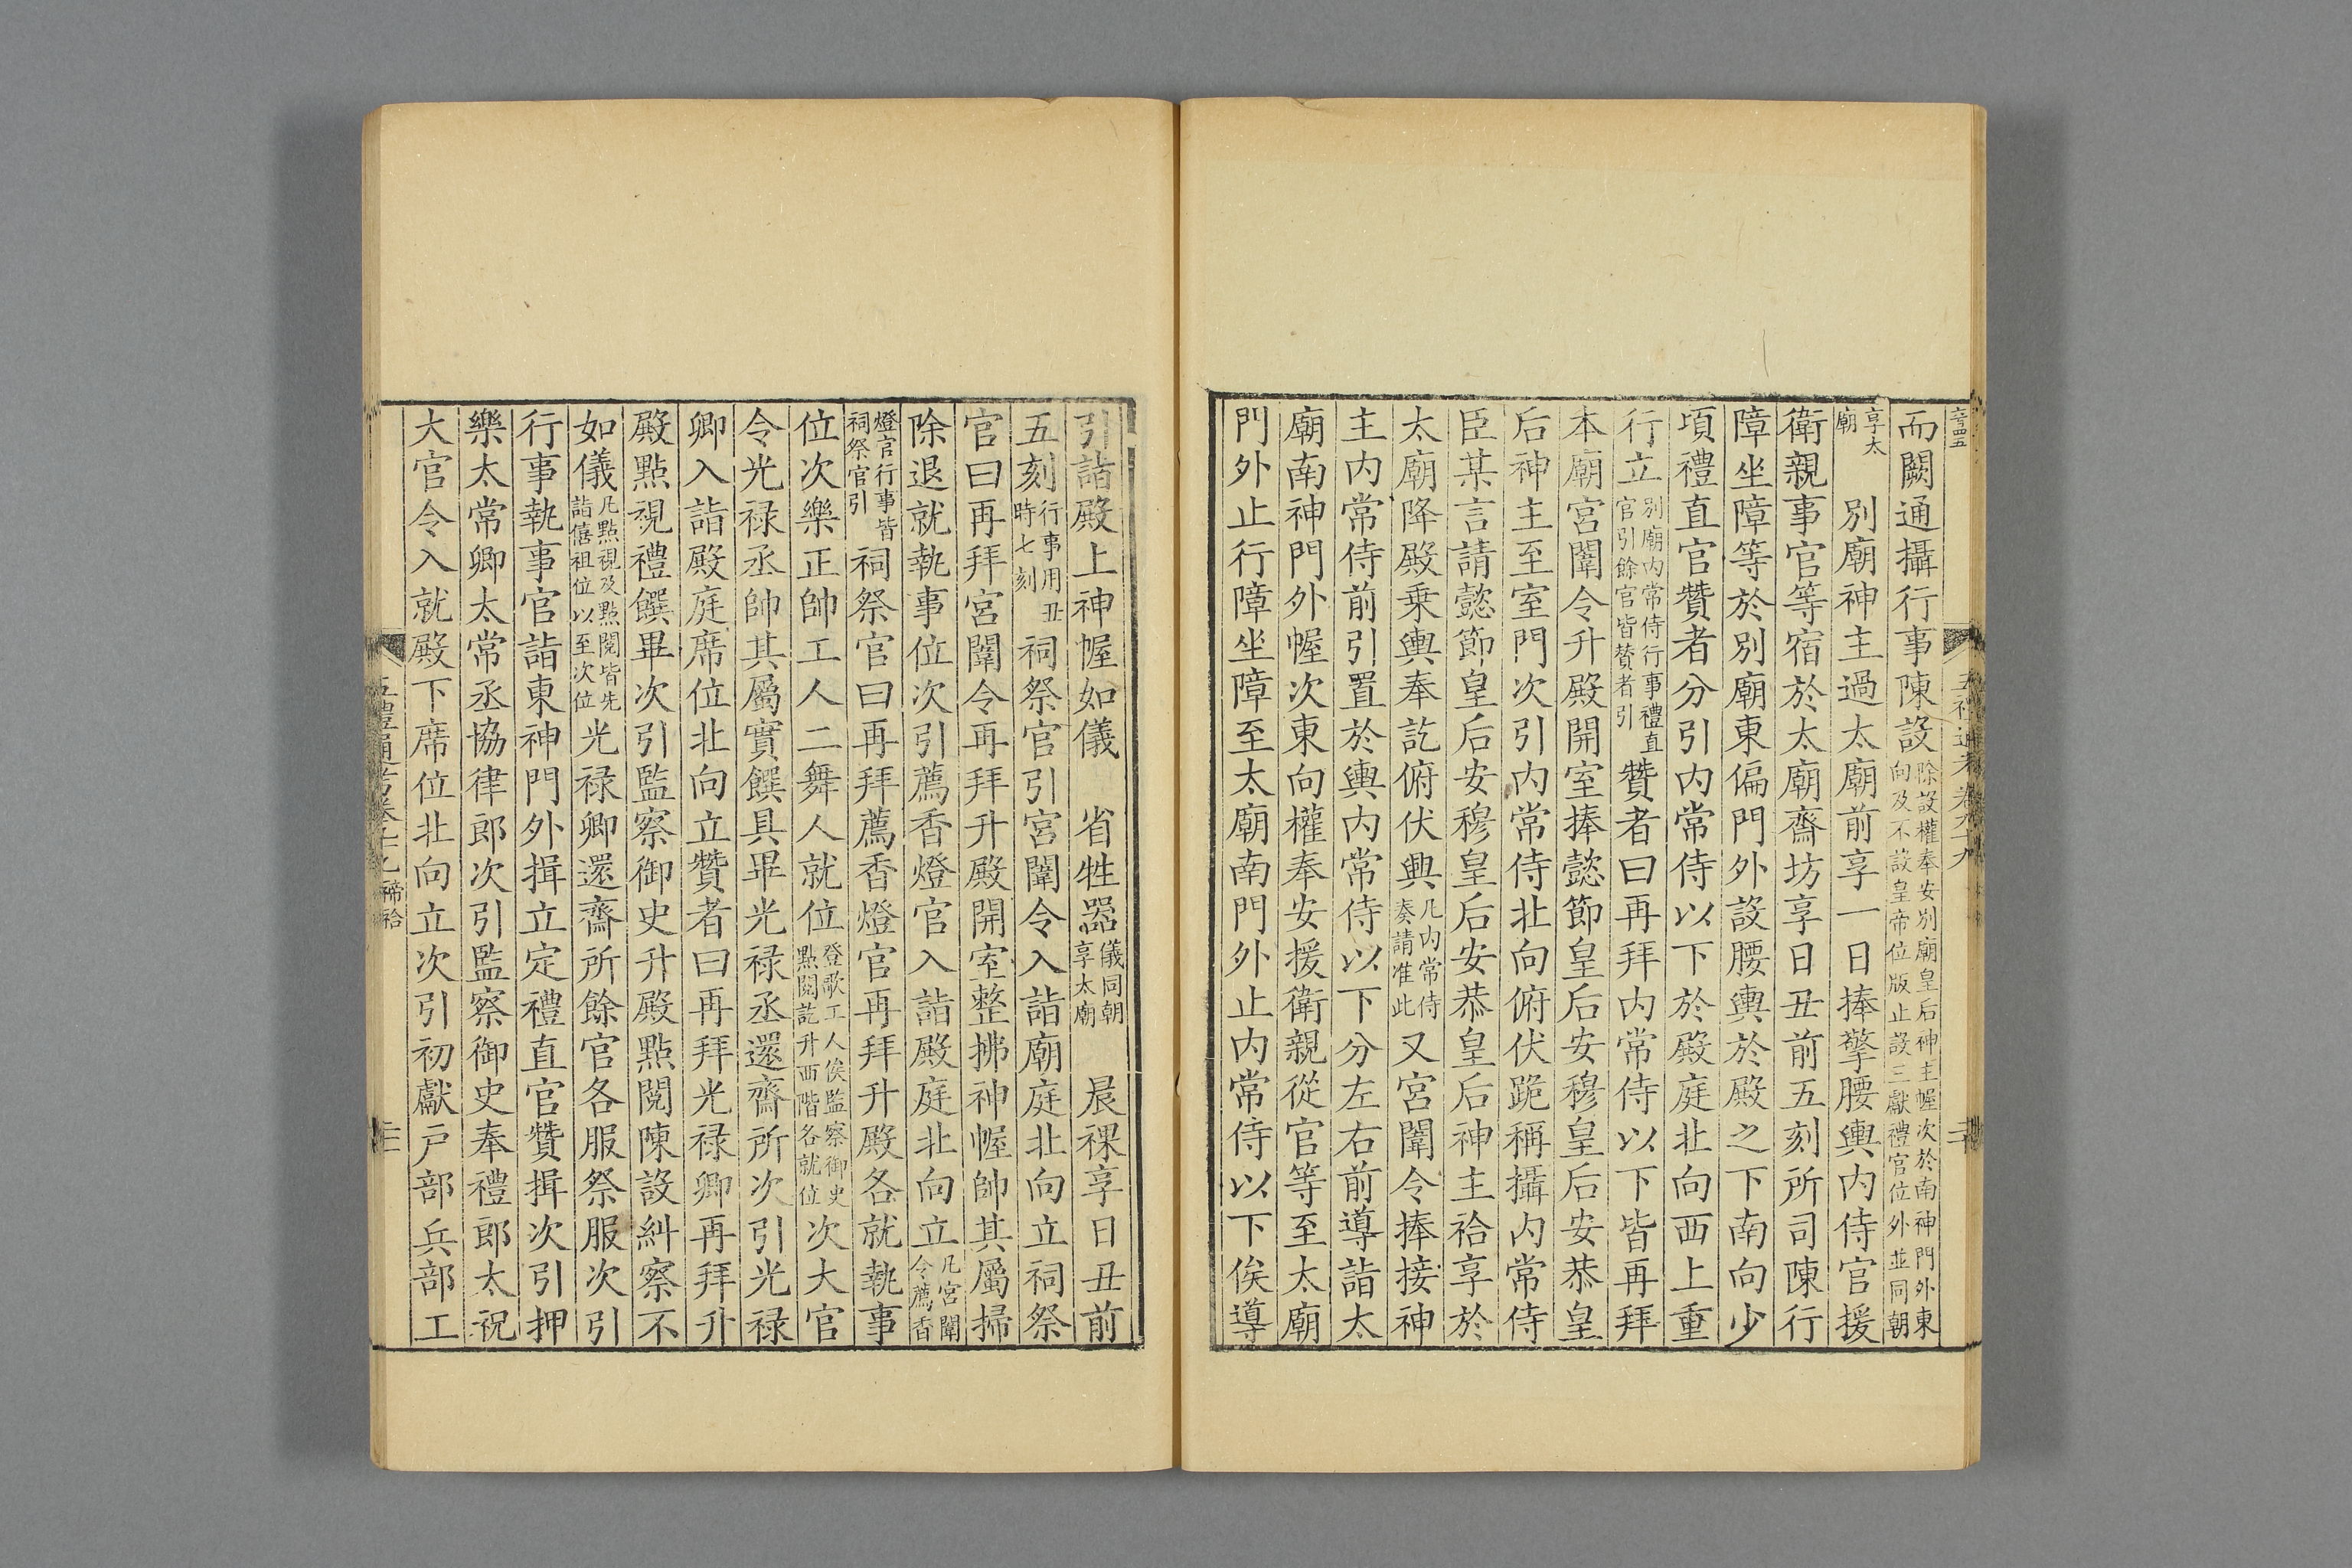 而闕通攝行事陳設除設權奉安別廟皇后神主幄次於南神門外東向及不設皇帝位版止設三獻禮官位外並同朝
享太廟　別廟神主過太廟前享一日捧擎腰輿內侍官援
衛親事官等宿於太廟齋坊享日丑前五刻所司陳行
障坐障等於別廟東偏門外設腰輿於殿之下南向少
頃禮直官贊者分引內常侍以下於殿庭北向西上重
行立別廟內常侍行事禮直官引餘官皆贊者引贊者曰再拜內常侍以下皆再拜
本廟宮闈令升殿開室捧懿節皇后安穆皇后安恭皇
后神主至室門次引內常侍北向俯伏跪稱攝內常侍
臣某言請懿節皇后安穆皇后安恭皇后神主祫享於
太廟降殿乗輿奉訖俯伏興凡內常侍奏請准此又宮闈令捧接神
主內常侍前引置於輿內常侍以下分左右前導詣太
廟南神門外幄次東向權奉安援衛親從官等至太廟
門外止行障坐障至太廟南門外止內常侍以下俟導
引詣殿上神幄如儀　省牲器儀同朝享太廟　晨祼享日丑前
五刻行事用丑時七刻祠祭官引宮闈令入詣廟庭北向立祠祭
官曰再拜宮闈令再拜升殿開室整拂神幄帥其屬掃
除退就執事位次引薦香燈官入詣殿庭北向立凡宮闈令薦香
燈官行事皆祠祭官引祠祭官曰再拜薦香燈官再拜升殿各就執事
位次樂正帥工人二舞人就位登歌工人俟監察御史點閱訖升西階各就位次大官
令光禄丞帥其屬實饌具畢光禄丞還齋所次引光禄
卿入詣殿庭席位北向立贊者曰再拜光禄卿再拜升
殿點視禮饌畢次引監察御史升殿點閱陳設糾察不
如儀凡點視及點閱皆先詣僖祖位以至次位光禄卿還齋所餘官各服祭服次引
行事執事官詣東神門外揖立定禮直官贊揖次引押
樂太常卿太常丞協律郎次引監察御史奉禮郎太祝
大官令入就殿下席位北向立次引初獻戶部兵部工